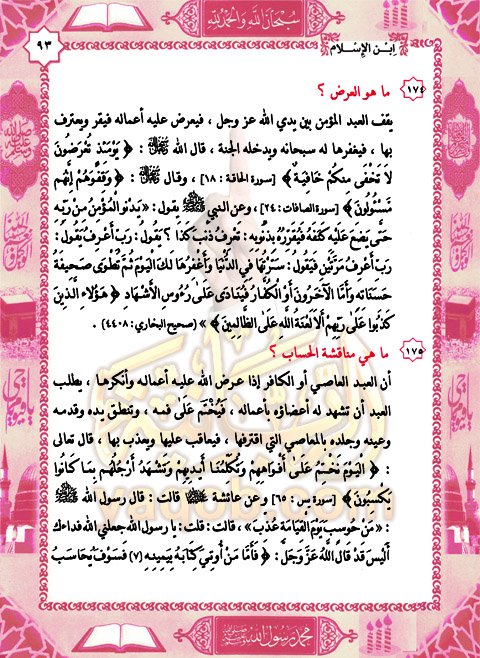 سُبْحَانَ اللَّهِ وَالْحَمْدُ لِلَّهِ
٩٣
اِبْنُ الإِسْلَام
١٧٤ ما هو العرض ؟
يقف العبد المؤمن بين يدي الله عز وجل ، فيعرض عليه أعماله فيقر ويعترف
بها ، فيغفرها له سبحانه ويدخله الجنة ، قال الله ﷻ : ﴿ يَوْمَئِذٍ تُعْرَضُونَ
لَا تَخْفَى مِنكُمْ خَافِيَةٌ ﴾ [سورة الحاقة : ١٨] ، وقال ﷻ : ﴿ وَقِفُوهُمْ إِنَّهُم
مَّسْئُولُونَ ﴾ [سورة الصافات : ٢٤] ، وعن النبي ﷺ يقول : «يَدْنُو الْمُؤْمِنُ مِنْ رَبِّهِ
حَتَّى يَضَعَ عَلَيْهِ كَنَفَهُ فَيُقَرِّرُهُ بِذُنُوبِهِ : تَعْرِفُ ذَنْبَ كَذَا ؟ يَقُولُ : رَبِّ أَعْرِفُ يَقُولُ :
رَبِّ أَعْرِفُ مَرَّتَيْنِ فَيَقُولُ : سَتَرْتُهَا فِي الدُّنْيَا وَأَغْفِرُهَا لَكَ الْيَوْمَ ثُمَّ تُطْوَى صَحِيفَةُ
حَسَنَاتِهِ وَأَمَّا الْآخَرُونَ أَوِ الْكُفَّارُ فَيُنَادَى عَلَى رُءُوسِ الْأَشْهَادِ ﴿ هَؤُلَاءِ الَّذِينَ
كَذَبُوا عَلَى رَبِّهِمْ أَلَا لَعْنَةُ اللَّهِ عَلَى الظَّالِمِينَ ﴾ » (صحيح البخاري : ٤٤٠٨) .
١٧٥ ما هي مناقشة الحساب ؟
أن العبد العاصي أو الكافر إذا عرض الله عليه أعماله وأنكرها ، يطلب
العبد أن تشهد له أعضاؤه بأعماله ، فَيُخْتَمُ عَلَى فمه ، وتنطق يده وقدمه
وعينه وجلده بالمعاصي التي اقترفها ، فيعاقب عليها ويعذب بها ، قال تعالى
: ﴿ الْيَوْمَ نَخْتِمُ عَلَىٰ أَفْوَاهِهِمْ وَتُكَلِّمُنَا أَيْدِيهِمْ وَتَشْهَدُ أَرْجُلُهُم بِمَا كَانُوا
يَكْسِبُونَ ﴾ [سورة يس : ٦٥] وعن عائشة قالت : قال رسول الله ﷺ
: «مَنْ حُوسِبَ يَوْمَ الْقِيَامَةِ عُذِّبَ» ، قالت : قلت : يا رسول الله جعلني الله فداءك
أَلَيْسَ قَدْ قَالَ اللَّهُ عَزَّ وَجَلَّ : ﴿ فَأَمَّا مَنْ أُوتِيَ كِتَابَهُ بِيَمِينِهِ (٧) فَسَوْفَ يُحَاسَبُ
محمد رسول الله ﷺ